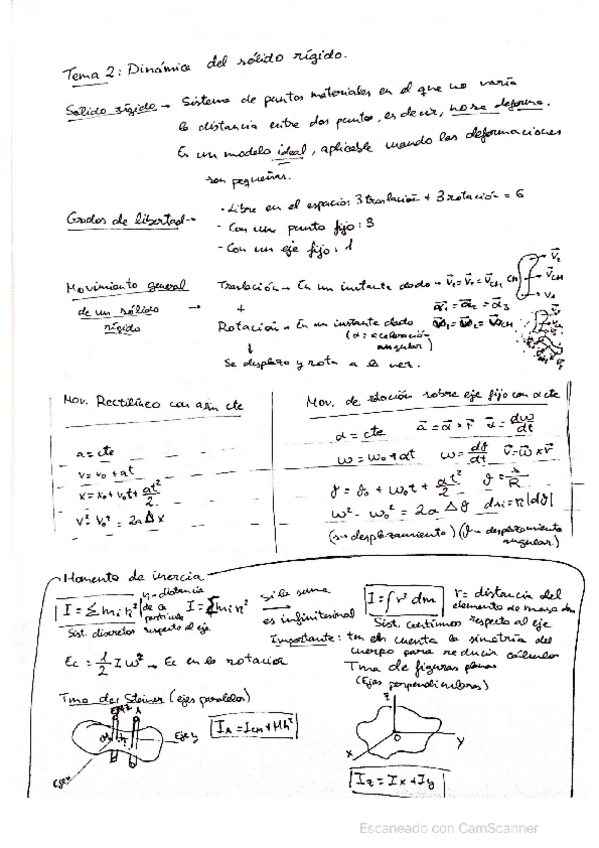 Tema 2: Dinámica del sólido rígido.
Sólido rígido → Sistema de puntos materiales en el que no varía
la distancia entre dos puntos, es decir, no se deforma.
Es un modelo ideal, aplicable cuando las deformaciones
son pequeñas.
Grados de libertad →
- Libre en el espacio: 3 traslación + 3 rotación = 6
- Con un punto fijo: 3
- Con un eje fijo: 1
Movimiento general
de un sólido
rígido
→
Traslación → En un instante dado → V⃗₁ = V⃗₂ = V⃗CM
+
a⃗₁ = a⃗₂ = a⃗₃
Rotación → En un instante dado
(α = aceleración
angular)
↓
Se desplaza y rota a la vez.
CM
V⃗₂
V⃗CM
V⃗₁
Mov. Rectilíneo con a sin cte
a = cte
v = v₀ + at
x = x₀ + v₀t + at²/2
v² - v₀² = 2a Δx
Mov. de rotación sobre eje fijo con α cte
α = cte a⃗ = α⃗ × r⃗ α⃗ = dω⃗/dt
ω = ω₀ + αt ω = dϑ/dt v⃗ = ω⃗ × r⃗
ϑ = ϑ₀ + ω₀t + αt²/2 ϑ = s/R
ω² - ω₀² = 2α Δϑ ds = R|dϑ|
(s → desplazamiento) (ϑ → desplazamiento
angular)
Momento de inercia
I = Σ mi ri²
r = distancia
de a
partícula
respecto al eje
Sist. discretos
I = Σ mi r²
si la suma
→
es infinitesimal
I = ∫ r² dm
Sist. continuos
r = distancia del
elemento de masa dm
respecto al eje
Importante: ten en cuenta la simetría del
cuerpo para reducir cálculos
Ec = 1/2 I ω² → Ec en la rotación
Tma de figuras planas
(Ejes perpendiculares)
Tma de Steiner (ejes paralelos)
IA = ICM + Mh²
Eje y
Eje x
z
O
x
y
Iz = Ix + Iy
Escaneado con CamScanner